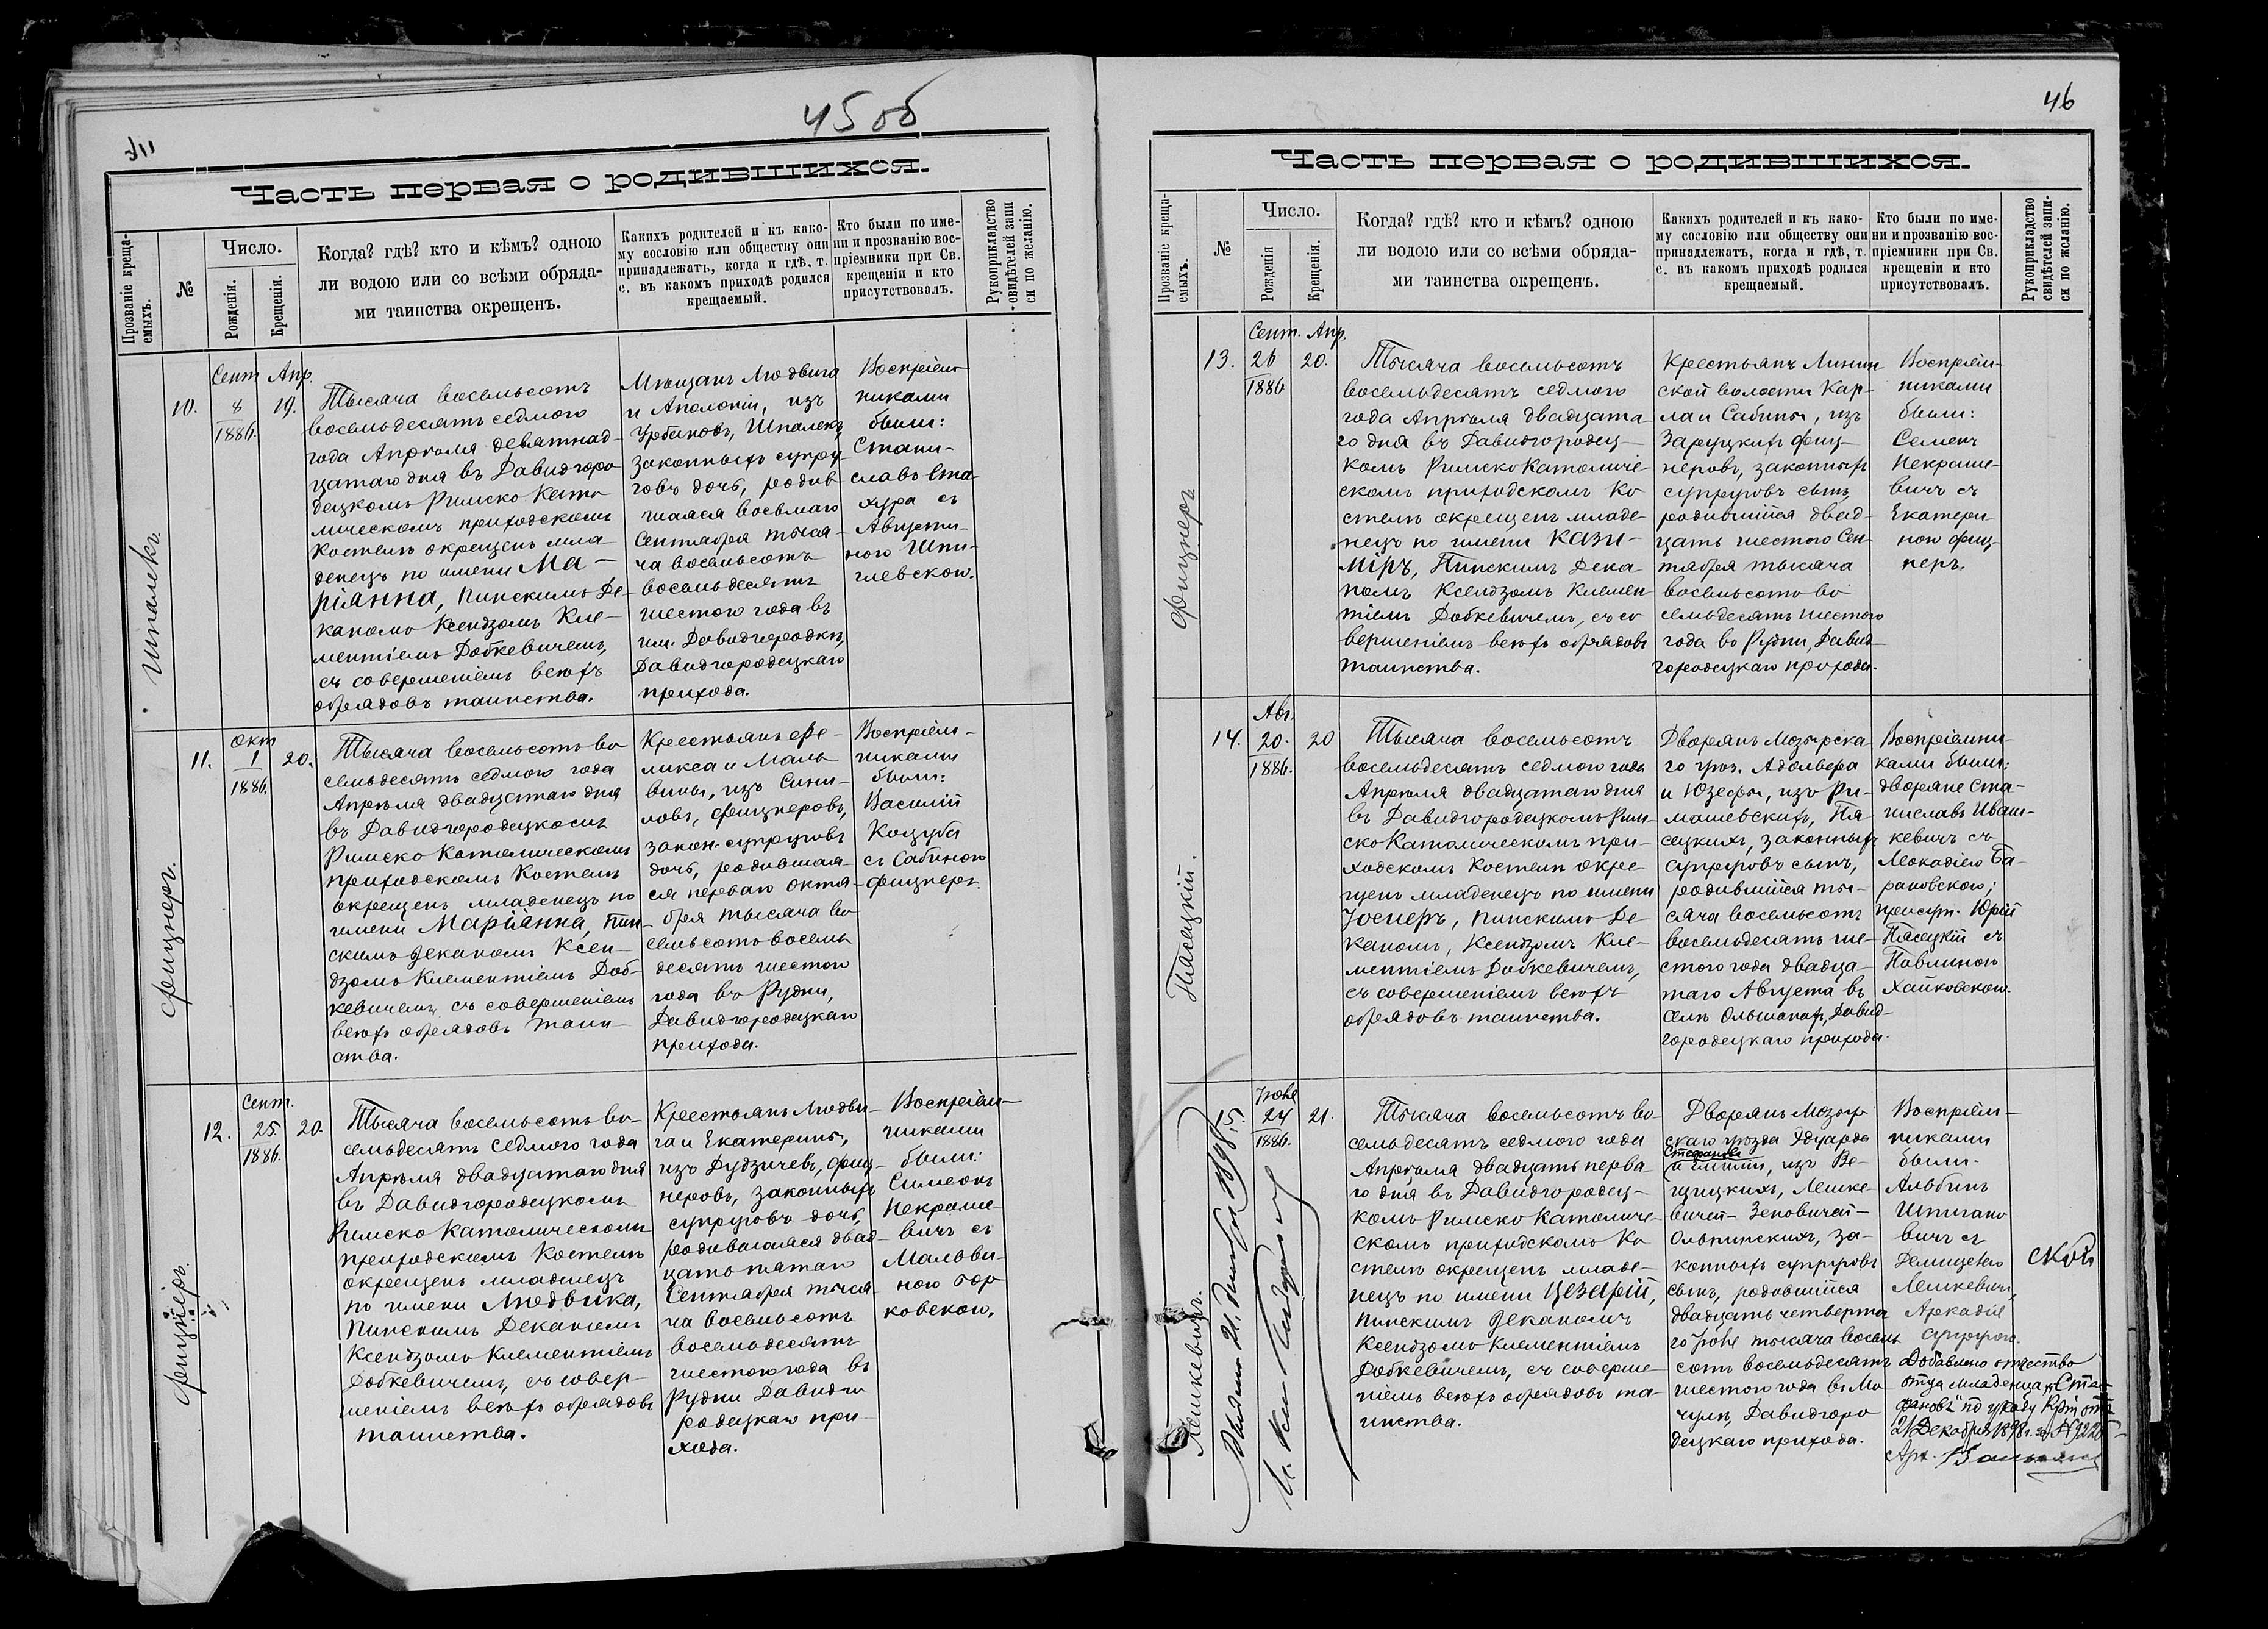 45 об
Часть первая о родившихся.
Прозваніе креща-
емыхъ.
№
Число.
Рожденія.
Крещенія.
Когда? гдѣ? кто и кѣмъ? одною
ли водою или со всѣми обряда-
ми таинства окрещенъ.
Какихъ родителей и къ како-
му сословію или обществу они
принадлежатъ, когда и гдѣ, т.
е. въ какомъ приходѣ родился
крещаемый.
Кто были по име-
ни и прозванію вос-
пріемники при Св.
крещеніи и кто
присутствовалъ.
Рукоприкладство
свидѣтелей запи
си по желанію.
Шпалекъ.
10.
Сент
8
1886.
Апр.
19.
Тысяча восемьсотъ
восемьдесятъ седмого
года Апрѣля девятнад-
цатаго дня въ Давидгоро
децкомъ Римско Като
лическомъ приходскомъ
Костелѣ окрещенъ мла
денецъ по имени Ма-
ріанна, Пинскимъ Де-
каномъ Ксендзомъ Кле-
ментіемъ Добкевичемъ,
съ совершеніемъ всѣхъ
обрядовъ таинства.
Мѣщанъ Людвига
и Аполоніи, изъ
Урбановъ, Шпалекъ,
законныхъ супру
говъ дочь, родив
шаяся восьмаго
Сентября тыся-
ча восемьсотъ
восемьдесятъ
шестого года въ
им. Давидгородкѣ,
Давидгородецкаго
прихода.
Воспріем-
никами
были:
Стани-
славъ Ста-
хура съ
Августи-
ною Шпи-
левскою.
Фицнеръ.
11.
Окт
1
1886.
20.
Тысяча восемьсотъ во
семьдесятъ седмого года
Апрѣля двадцатаго дня
въ Давидгородецкомъ
Римско Католическомъ
приходскомъ Костелѣ
окрещенъ младенецъ по
имени Маріанна, Пин-
скимъ Деканомъ Ксен-
дзомъ Клементіемъ Доб-
кевичемъ, съ совершеніемъ
всѣхъ обрядовъ таин-
ства.
Крестьянъ Фе-
ликса и Маль
вины, изъ Сини-
ловъ, Фицнеровъ,
закон. супруговъ
дочь, родившая-
ся перваго Октя-
бря тысяча во
семьсотъ восемь
десятъ шестого
года въ Рудни,
Давидгородецкаго
прихода.
Воспріем-
никами
были:
Василій
Коцуба
съ Сабиною
Фицнеръ.
Фицнеръ.
12.
Сент.
25.
1886.
20.
Тысяча восемьсотъ во-
семьдесятъ седмого года
Апрѣля двадцатаго дня
въ Давидгородецкомъ
Римско Католическомъ
приходскомъ Костелѣ
окрещенъ младенецъ
по имени Людвика,
Пинскимъ Деканомъ
Ксендзомъ Клементіемъ
Добкевичемъ, съ совер-
шеніемъ всѣхъ обрядовъ
таинства.
Крестьянъ Людви-
га и Екатерины,
изъ Дудзичевъ, Фиц-
неровъ, законныхъ
супруговъ дочь,
родившаяся двад-
цать пятаго
Сентября тыся-
ча восемьсотъ
восемьдесятъ
шестого года въ
Рудни Давидго
родецкаго при-
хода.
Воспріем-
никами
были:
Симеонъ
Некраше-
вичъ съ
Мальви-
ною Бор
ковскою.
46
Часть первая о родившихся.
Прозваніе креща-
емыхъ.
№
Число.
Рожденія
Крещенія.
Когда? гдѣ? кто и кѣмъ? одною
ли водою или со всѣми обряда-
ми таинства окрещенъ.
Какихъ родителей и къ како-
му сословію или обществу они
принадлежатъ, когда и гдѣ, т.
е. въ какомъ приходѣ родился
крещаемый.
Кто были по име-
ни и прозванію вос-
пріемники при Св.
крещеніи и кто
присутствовалъ.
Рукоприкладство
свидѣтелей запи-
си по желанію.
Фицнеръ
13.
Сент.
26
1886
Апр.
20.
Тысяча восемьсотъ
восемьдесятъ седмого
года Апрѣля двадцата-
го дня въ Давидгородец-
комъ Римско Католиче-
скомъ приходскомъ Ко
стелѣ окрещенъ младе-
нецъ по имени Кази-
міръ, Пинскимъ Дека-
номъ Ксендзомъ Клемен
тіемъ Добкевичемъ, съ со
вершеніемъ всѣхъ обрядовъ
таинства.
Крестьянъ Линин
ской волости Кар-
ла и Сабины, изъ
Заруцкихъ Фиц-
неровъ, законныхъ
супруговъ сынъ,
родившійся двад-
цать шестого Сен-
тября тысяча
восемьсотъ во
семьдесятъ шестого
года въ Рудни, Давид-
городецкаго прихода.
Воспріем-
никами
были:
Семенъ
Некраше-
вичъ съ
Екатери
ною Фиц-
неръ.
Пясецкій.
14.
Авг.
20.
1886.
20
Тысяча восемьсотъ
восемьдесятъ седмого года
Апрѣля двадцатаго дня
въ Давидгородецкомъ Рим-
ско Католическомъ при-
ходскомъ Костелѣ окре-
щенъ младенецъ по имени
Іосифъ, Пинскимъ Де-
каномъ, Ксендзомъ Кле-
ментіемъ Добкевичемъ,
съ совершеніемъ всѣхъ
обрядовъ таинства.
Дворянъ Мозырска
го уѣз. Адольфа
и Юзефы, изъ Ри-
машевскихъ, Пя-
сецкихъ, законныхъ
супруговъ сынъ,
родившійся ты-
сяча восемьсотъ
восемьдесятъ ше-
стого года двадца-
таго Августа въ
селѣ Ольшанахъ, Давид-
городецкаго прихода.
Воспріемни-
ками были:
дворяне Ста-
ниславъ Иваш-
кевичъ съ
Леокадіею Ба-
рановскою;
присут. Юрій
Пясецкій съ
Павлиною
Ханковскою.
Лешкевичъ.
15.
Іюня
24
1886.
21.
Тысяча восемьсотъ во-
семьдесятъ седмого года
Апрѣля двадцать перва-
го дня въ Давидгородец-
комъ Римско Католиче-
скомъ приходскомъ Ко
стелѣ окрещенъ младе-
нецъ по имени Цезарій,
Пинскимъ Деканомъ
Ксендзомъ Клементіемъ
Добкевичемъ, съ соверше-
ніемъ всѣхъ обрядовъ та-
инства.
Дворянъ Мозыр
скаго уѣзда Эдуарда
Стефанова
и Эмиліи, изъ Ве-
щицкихъ, Лешке-
вичей-Зеновичей-
Ольпинскихъ, за-
конныхъ супруговъ
сынъ, родившійся
двадцать четверта
го Іюня тысяча восемь
сотъ восемьдесятъ
шестого года въ Мо-
чулѣ, Давидгоро
децкаго прихода.
Воспріем-
никами
были:
Альбинъ
вичъ съ
Лешкевичъ,
Добавлено отчество
отца младенца „Сте-
фановъ" по указу
21 Декабря 1898 г. за №